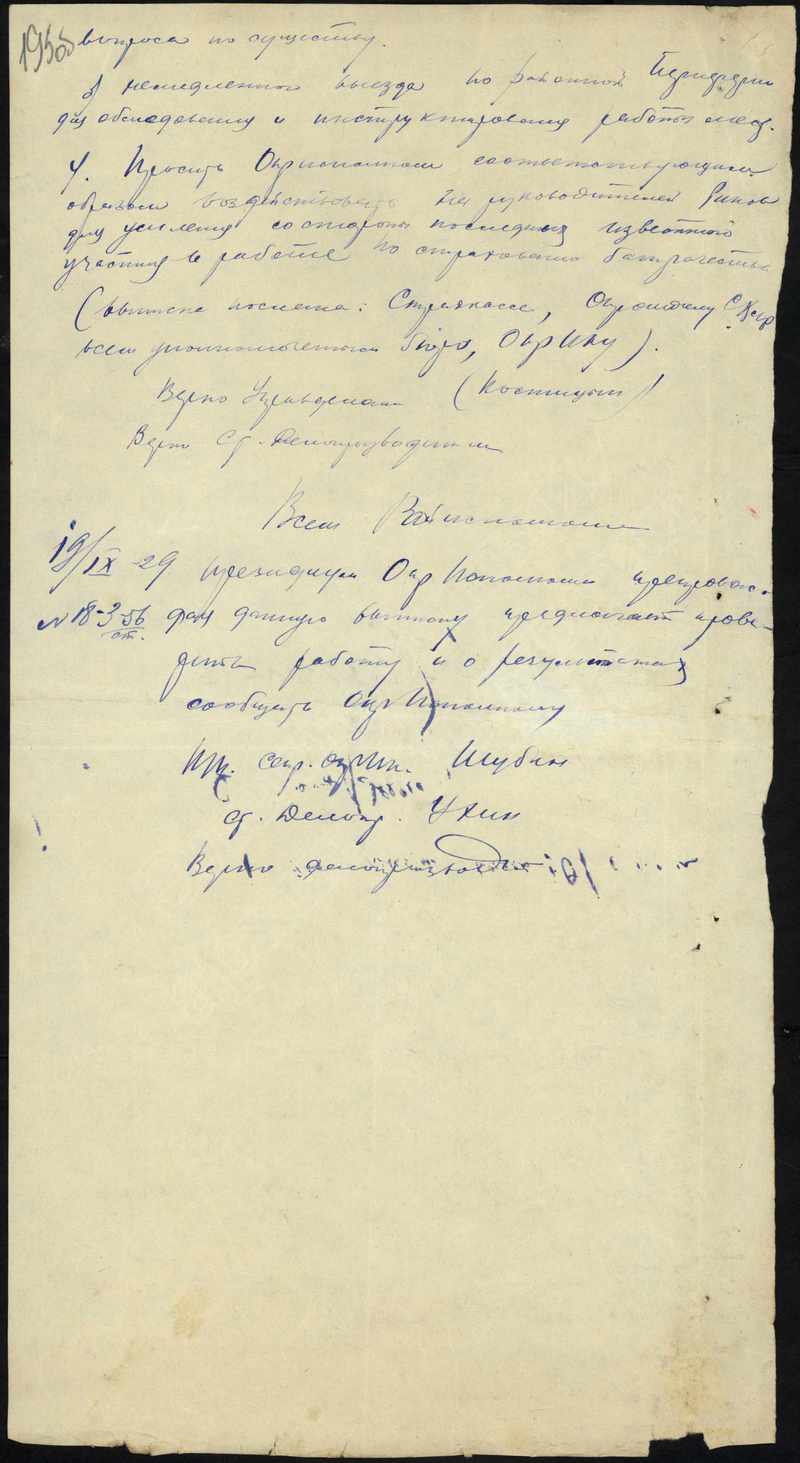 195об
вопроса по существу.
з) немедленного выезда по районной периферии
для обследования и инструктирования работы мест.
4. Просить Окрисполком соответствующим
образом воздействовать на руководителей Риков
для усиления со стороны последних известного
участия в работе по страхованию батрачества
(выписка послана: Страхкассе, Окротделу С.
всем уполномоченным бюро, ОкрИку).
Верно Управделами (Костицын)
Верно Ст. Делопроизводитель
Всем Райисполкомам
19/IX-29 Президиум ОкрИсполкома препровож-
№ 18-3-56 дая данную выписку предлагает прове-
ст.
дить работу и о результатах
сообщить ОкрИсполкому
Сек. ОкрИк. Шубин
Ст. Делопр. Ухин
Верно делопроизводитель